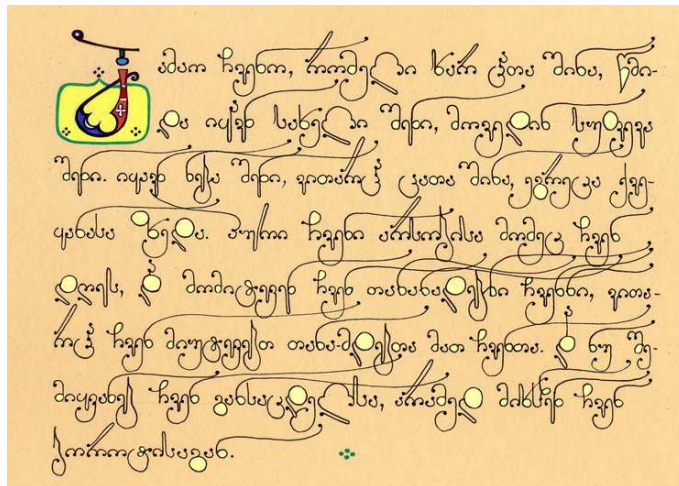 მამაო ჩვენო, რომელი ხარ ცათა შინა, წმი-
და იყავნ სახელი შენი, მოვედინ სუფევა
შენი. იყავნ ნება შენი, ვითარცა ცათა შინა, ეგრეცა ქვე-
ყანასა ზედა. პური ჩვენი არსობისა მომეც ჩვენ
დღეს, და მომიტევენ ჩვენ თანანადებნი ჩვენნი, ვითა-
რცა ჩვენ მივუტევებთ თანა-მდებთა მათ ჩვენთა. და ნუ შე-
მიყვანებ ჩვენ განსაცდელსა, არამედ მიხსნენ ჩვენ
ბოროტისაგან.